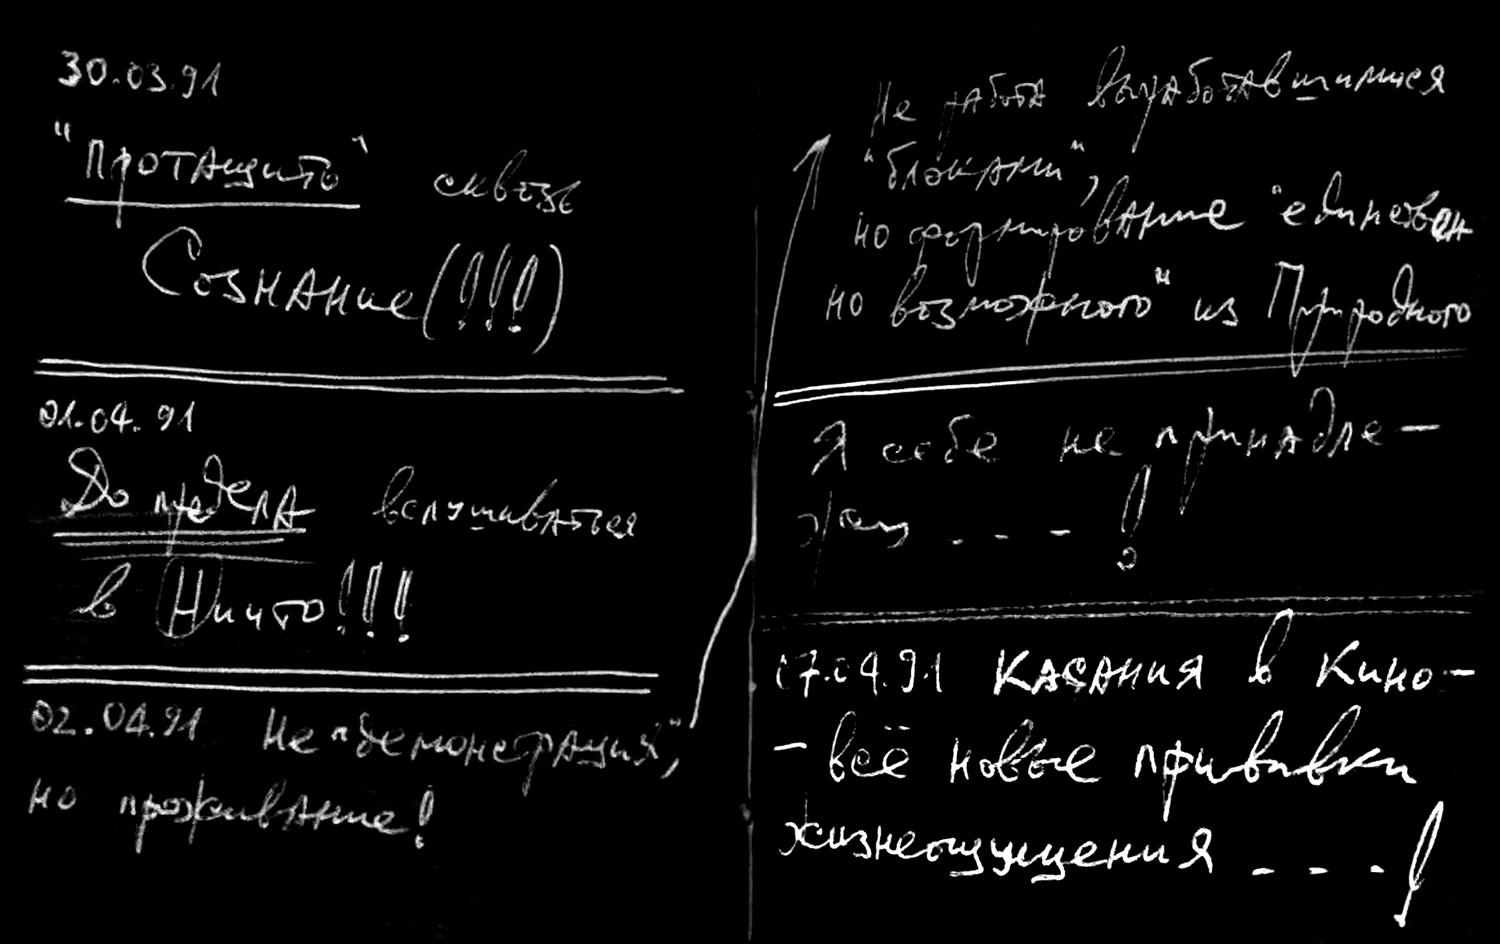 30.03.91
"Протащить" сквозь
Сознание(!!!)
01.04.91
До предела вслушиваться
в Ничто!!!
02.04.91 Не "демонстрация",
но проживание!
Не работа выработавшимися
"блоками",
но формирование "единствен
но возможного" из Природного
Я себе не принадле-
жу ... !
07.04.91 Касания в Кино-
- всё новые прививки
жизнеощущения ... !